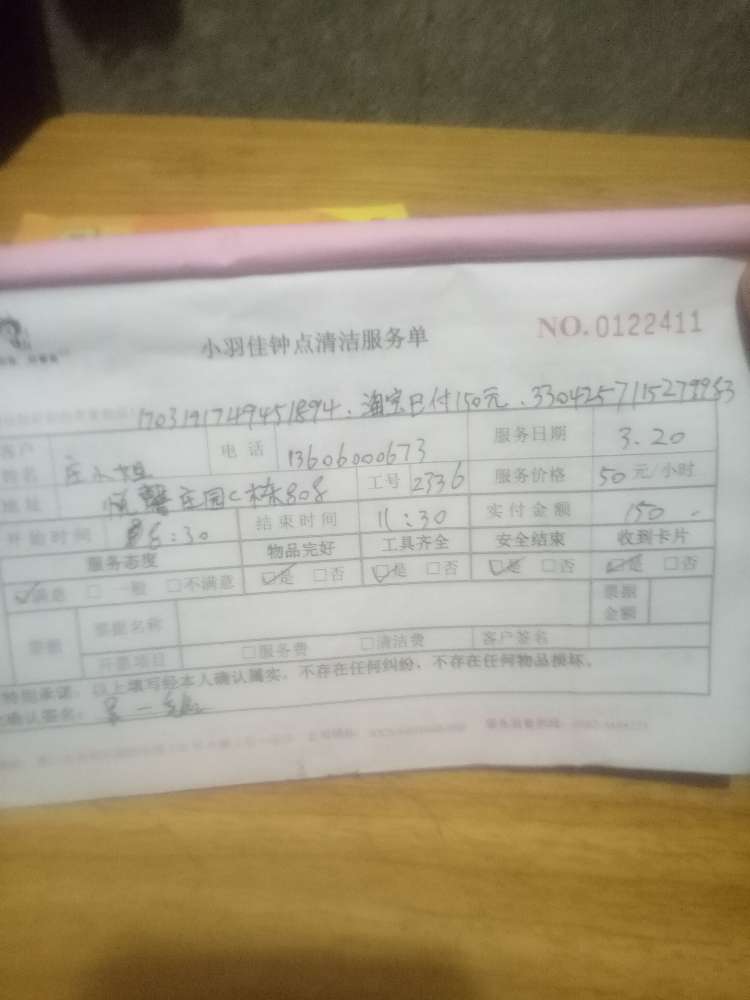 小羽佳钟点清洁服务单 NO.0122411
1703191749451894、淘宝已付150元、3304257115279953
客户姓名 庄小姐 电话 13606000673 服务日期 3.20
地址 馨庄园C栋808 工号 2336 服务价格 50元/小时
开始时间 8:30 结束时间 11:30 实付金额 150
服务态度 物品完好 工具齐全 安全结束 收到卡片
☑满意 □一般 □不满意 ☑是 □否 ☑是 □否 ☑是 □否 ☑是 □否
票据 票据名称 票据金额
开票项目 □服务费 □清洁费 客户签名
特别承诺：以上填写经本人确认属实，不存在任何纠纷、不存在任何物品损坏。
确认签名：